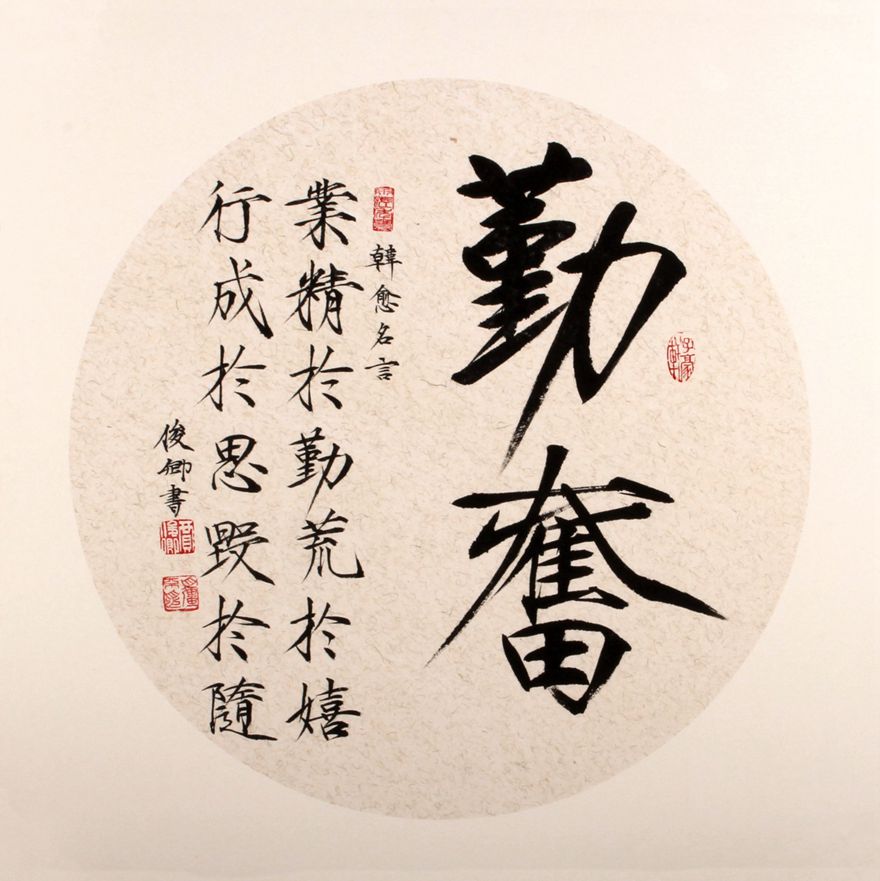 勤奮
韓愈名言
業精於勤荒於嬉
行成於思毀於隨
俊卿書